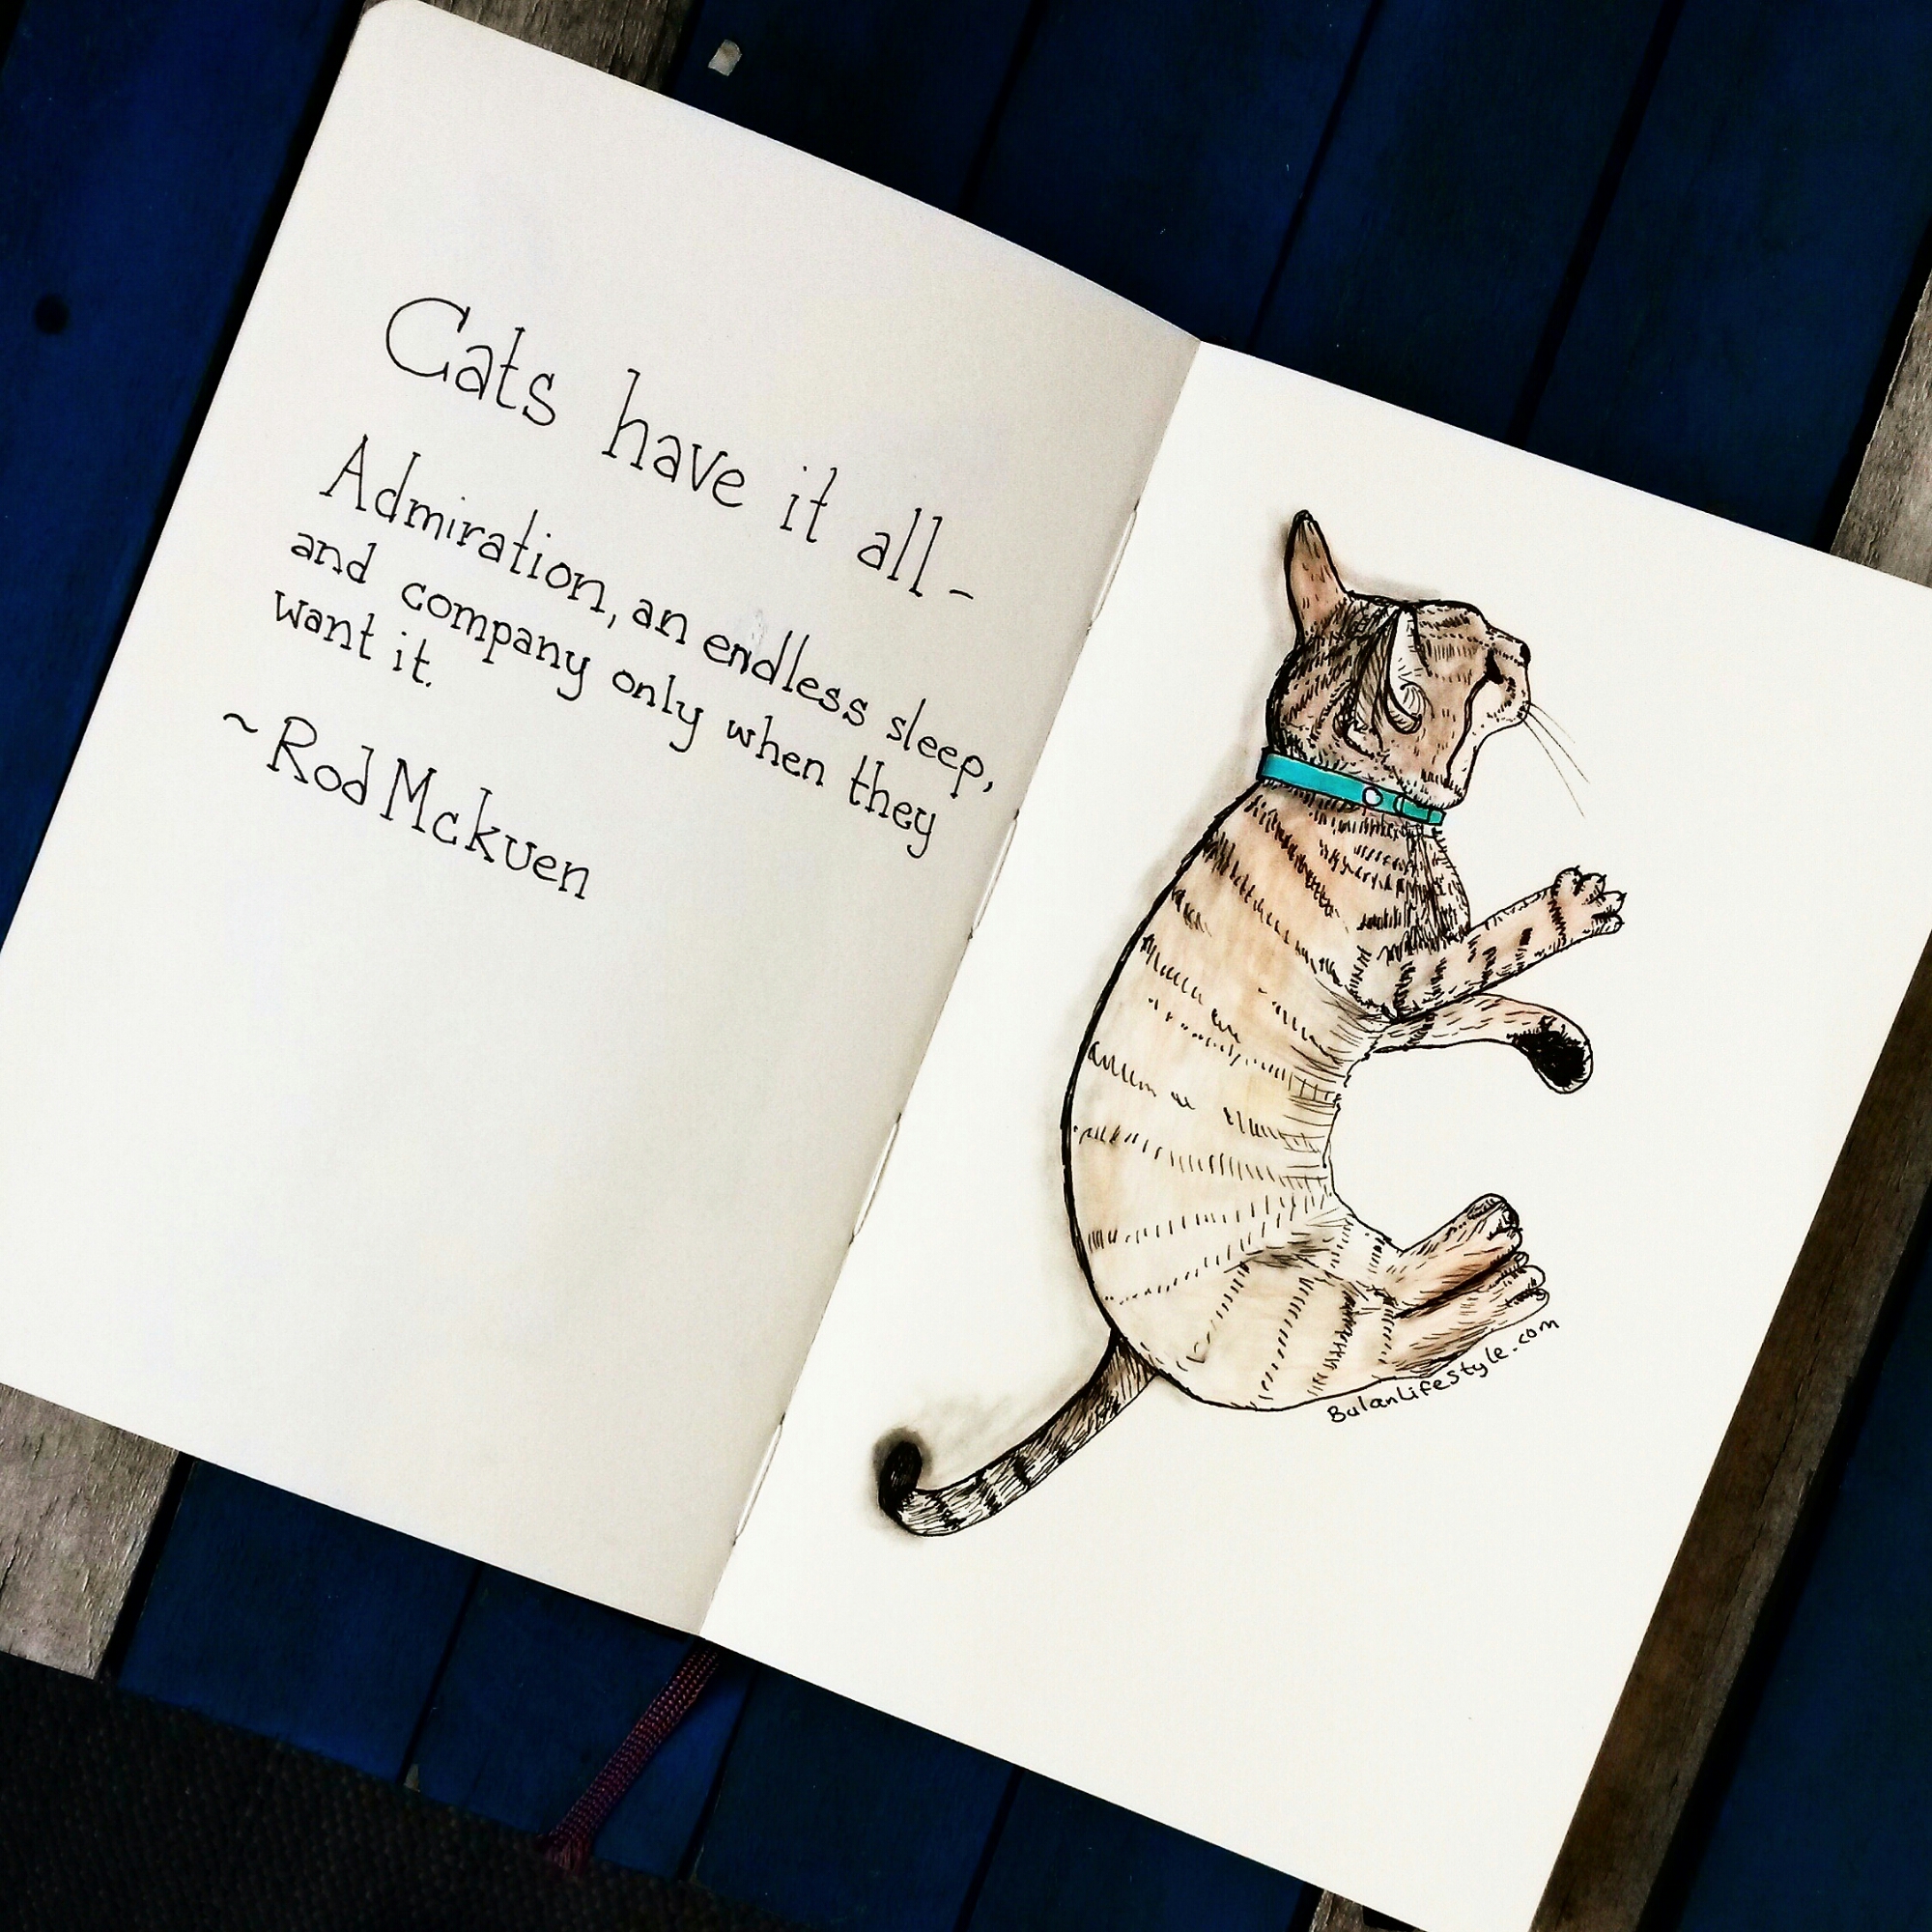 Cats have it all -
Admiration, an endless sleep,
and company only when they
want it.
~ Rod Mckuen
BulanLifestyle.com